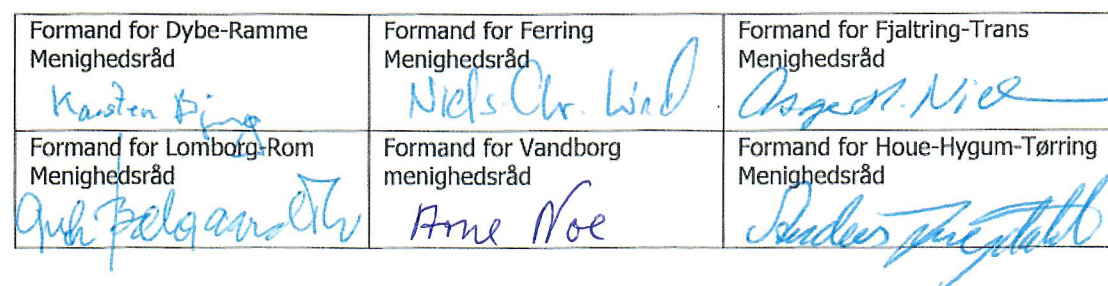 Formand for Dybe-Ramme
Menighedsråd
Karsten
Formand for Ferring
Menighedsråd
Niels Chr. Lind
Formand for Fjaltring-Trans
Menighedsråd
Asger
Formand for Lomborg-Rom
Menighedsråd
Formand for Vandborg
menighedsråd
Arne Noe
Formand for Houe-Hygum-Tørring
Menighedsråd
Anders